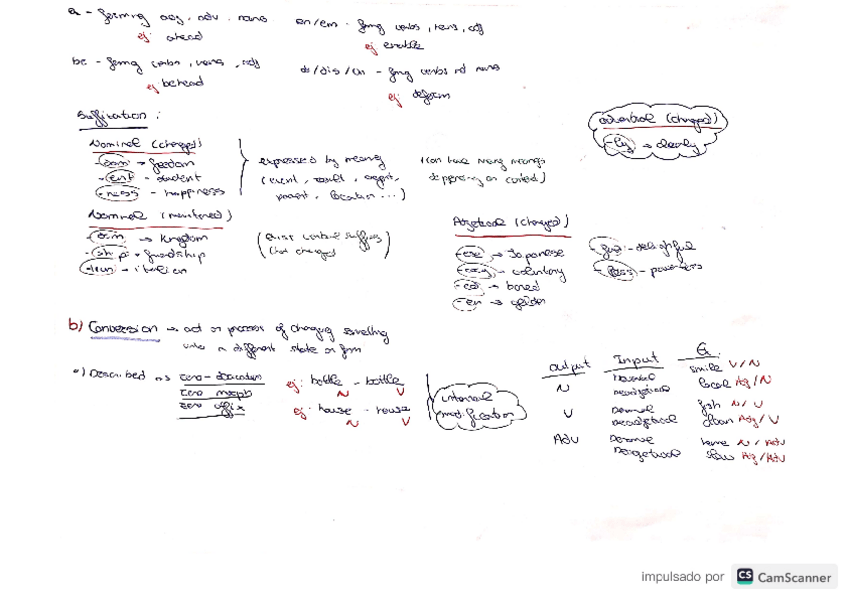 a - forming adj, adv, nouns
ej: ahead
en/em - fmng verbs, nouns, adj
ej enable
be - fmng verbs, nouns, adj
ej behead
de/dis/un - fmng verbs nd nouns
ej: deform
Suffixation:
Nominal (changed)
-dom → freedom
-ent - student
-ness - happiness
expressed by meaning
(event, result, agent,
, location ...)
(can have many meanings
depending on context)
Adverbial (changed)
-ly → clearly
Nominal (maintained)
-dom → Kingdom
-ship - friendship
-ian - italian
(not changed)
Adjectival (changed)
-ese → Japanese
-ary - voluntary
-ed - bored
-en →
-ful - delightful
-less - powerless
b) Conversion → act or process of changing something
into a different state or form
Described as zero-derivation
zero morph
zero affix
ej: bottle - bottle
N V
ej: house - house
N V
internal
modification
output Input
N Deverbal smile V/N
Deadjetival local Adj/N
V Denominal fish N/V
Deadjetival clean Adj/V
Adv home N/Adv
slow Adj/Adv
impulsado por CS CamScanner